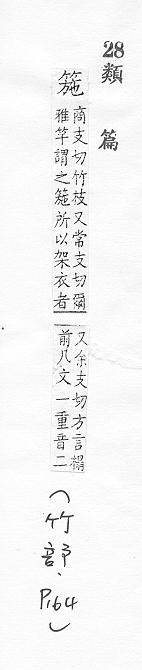 28 類篇
箷
商支切竹枝又常支切爾
雅竿謂之箷所以架衣者
又余支切方言榻
前几文一重音二
(竹部、P164)